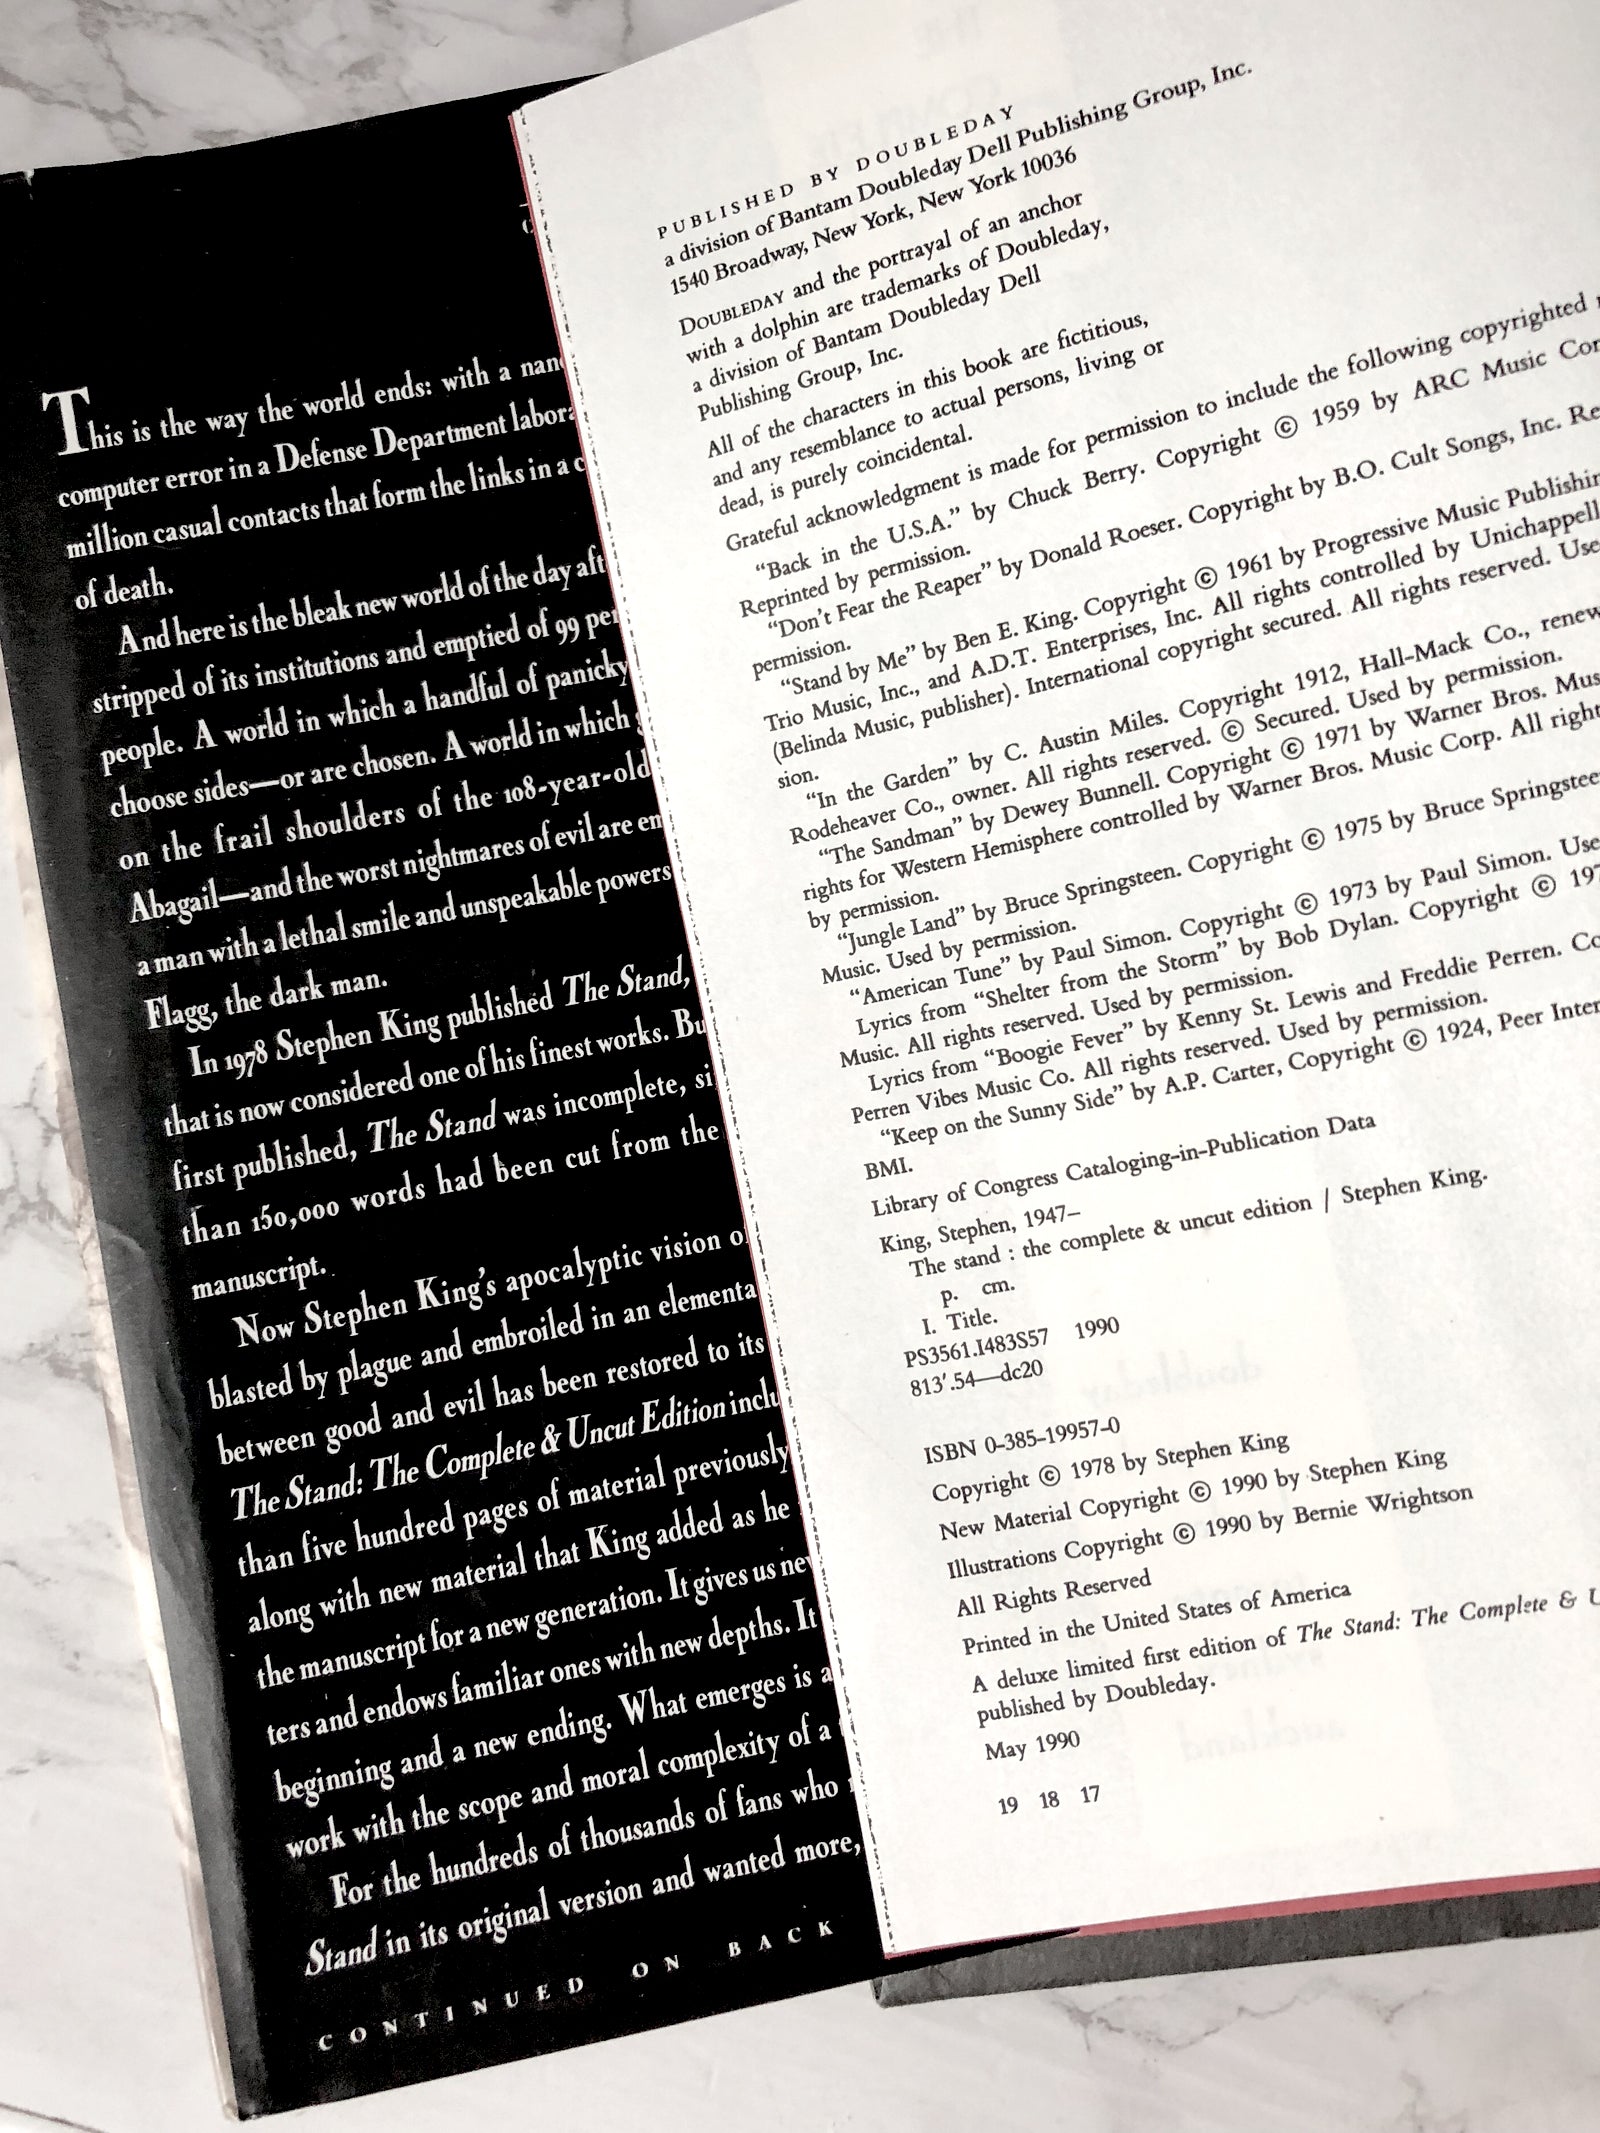 This is the way the world ends: with a
computer error in a Defense Department
million casual contacts that form the links in a
of death.
And here is the bleak new world of the day
stripped of its institutions and emptied of 99
people. A world in which a handful of panicky
choose sides—or are chosen. A world in which
on the frail shoulders of the 108-year-old
Abagail—and the worst nightmares of evil are
a man with a lethal smile and unspeakable powers
Flagg, the dark man.
In 1978 Stephen King published The Stand,
that is now considered one of his finest works.
first published, The Stand was incomplete,
than 150,000 words had been cut from the
manuscript.
Now Stephen King's apocalyptic vision
blasted by plague and embroiled in an
between good and evil has been restored to its
The Stand: The Complete & Uncut Edition
than five hundred pages of material previously
along with new material that King added as he
the manuscript for a new generation. It gives us
ters and endows familiar ones with new depths. It
beginning and a new ending. What emerges is a
work with the scope and moral complexity of a
For the hundreds of thousands of fans who
Stand in its original version and wanted more,
CONTINUED ON BACK
PUBLISHED BY DOUBLEDAY
a division of Bantam Doubleday Dell Publishing Group, Inc.
1540 Broadway, New York, New York 10036
DOUBLEDAY and the portrayal of an anchor
with a dolphin are trademarks of Doubleday,
a division of Bantam Doubleday Dell
Publishing Group, Inc.
All of the characters in this book are fictitious,
and any resemblance to actual persons, living or
dead, is purely coincidental.
Grateful acknowledgment is made for permission to include the following copyrighted
"Back in the U.S.A." by Chuck Berry. Copyright © 1959 by ARC Music
Reprinted by permission.
"Don't Fear the Reaper" by Donald Roeser. Copyright by B.O. Cult Songs, Inc.
permission.
"Stand by Me" by Ben E. King. Copyright © 1961 by Progressive Music
Trio Music, Inc., and A.D.T. Enterprises, Inc. All rights controlled by Unichappell
(Belinda Music, publisher). International copyright secured. All rights reserved.
sion.
"In the Garden" by C. Austin Miles. Copyright 1912, Hall-Mack Co.,
Rodeheaver Co., owner. All rights reserved. © Secured. Used by permission.
"The Sandman" by Dewey Bunnell. Copyright © 1971 by Warner Bros.
rights for Western Hemisphere controlled by Warner Bros. Music Corp. All
by permission.
"Jungle Land" by Bruce Springsteen. Copyright © 1975 by Bruce
Music. Used by permission.
"American Tune" by Paul Simon. Copyright © 1973 by Paul Simon.
Lyrics from "Shelter from the Storm" by Bob Dylan. Copyright ©
Music. All rights reserved. Used by permission.
Lyrics from "Boogie Fever" by Kenny St. Lewis and Freddie Perren.
Perren Vibes Music Co. All rights reserved. Used by permission.
"Keep on the Sunny Side" by A.P. Carter, Copyright © 1924, Peer
BMI.
Library of Congress Cataloging-in-Publication Data
King, Stephen, 1947–
The stand : the complete & uncut edition / Stephen King.
p. cm.
I. Title.
PS3561.I483S57 1990
813'.54—dc20
ISBN 0-385-19957-0
Copyright © 1978 by Stephen King
New Material Copyright © 1990 by Stephen King
Illustrations Copyright © 1990 by Bernie Wrightson
All Rights Reserved
Printed in the United States of America
A deluxe limited first edition of The Stand: The Complete &
published by Doubleday.
May 1990
19 18 17